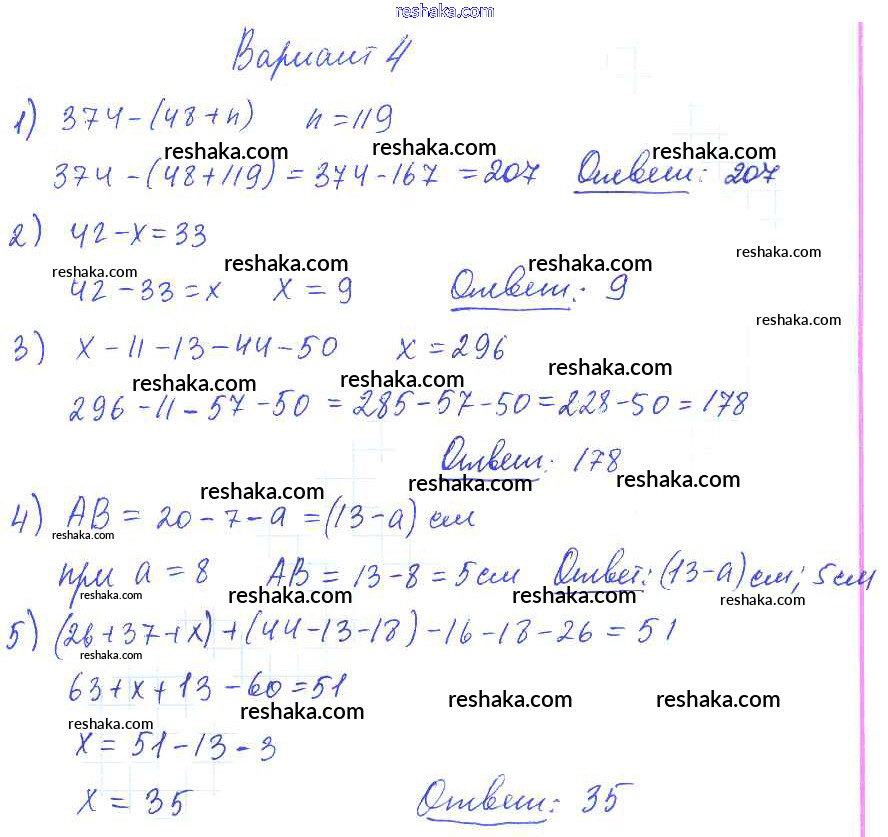 reshaka.com
Вариант 4
1) 374-(48+n) n=119
reshaka.com reshaka.com reshaka.com
374-(48+119)=374-167=207 Ответ: 207
2) 42-x=33
reshaka.com
reshaka.com reshaka.com reshaka.com
42-33=x x=9 Ответ: 9
reshaka.com
3) x-11-13-44-50 x=296
reshaka.com reshaka.com reshaka.com
296-11-57-50=285-57-50=228-50=178
Ответ: 178
reshaka.com reshaka.com reshaka.com
4) AB=20-7-a=(13-a) см
reshaka.com
при a=8 AB=13-8=5см Ответ: (13-a)см; 5см
reshaka.com reshaka.com reshaka.com reshaka.com
5) (26+37+x)+(44-13-18)-16-18-26=51
reshaka.com
63+x+13-60=51
reshaka.com reshaka.com reshaka.com
reshaka.com
x=51-13-3
x=35 Ответ: 35